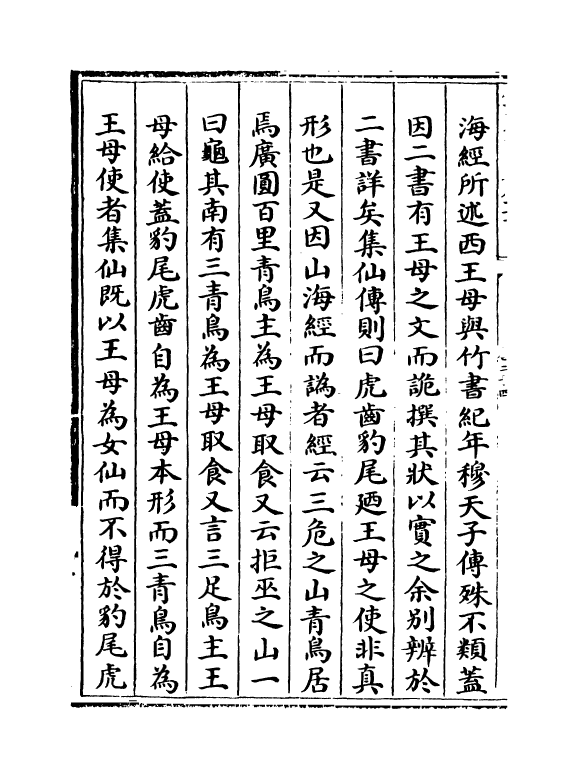 海經所述西王母與竹書紀年穆天子傳殊不類蓋
因二書有王母之文而詭撰其狀以實之余别辨於
二書詳矣集仙傳則曰虎齒豹尾廼王母之使非真
形也是又因山海經而譌者經云三危之山青鳥居
焉廣圓百里青鳥主為王母取食又云拒巫之山一
曰龜其南有三青鳥為王母取食又言三足鳥主王
母給使蓋豹尾虎齒自為王母本形而三青鳥自為
王母使者集仙既以王母為女仙而不得於豹尾虎